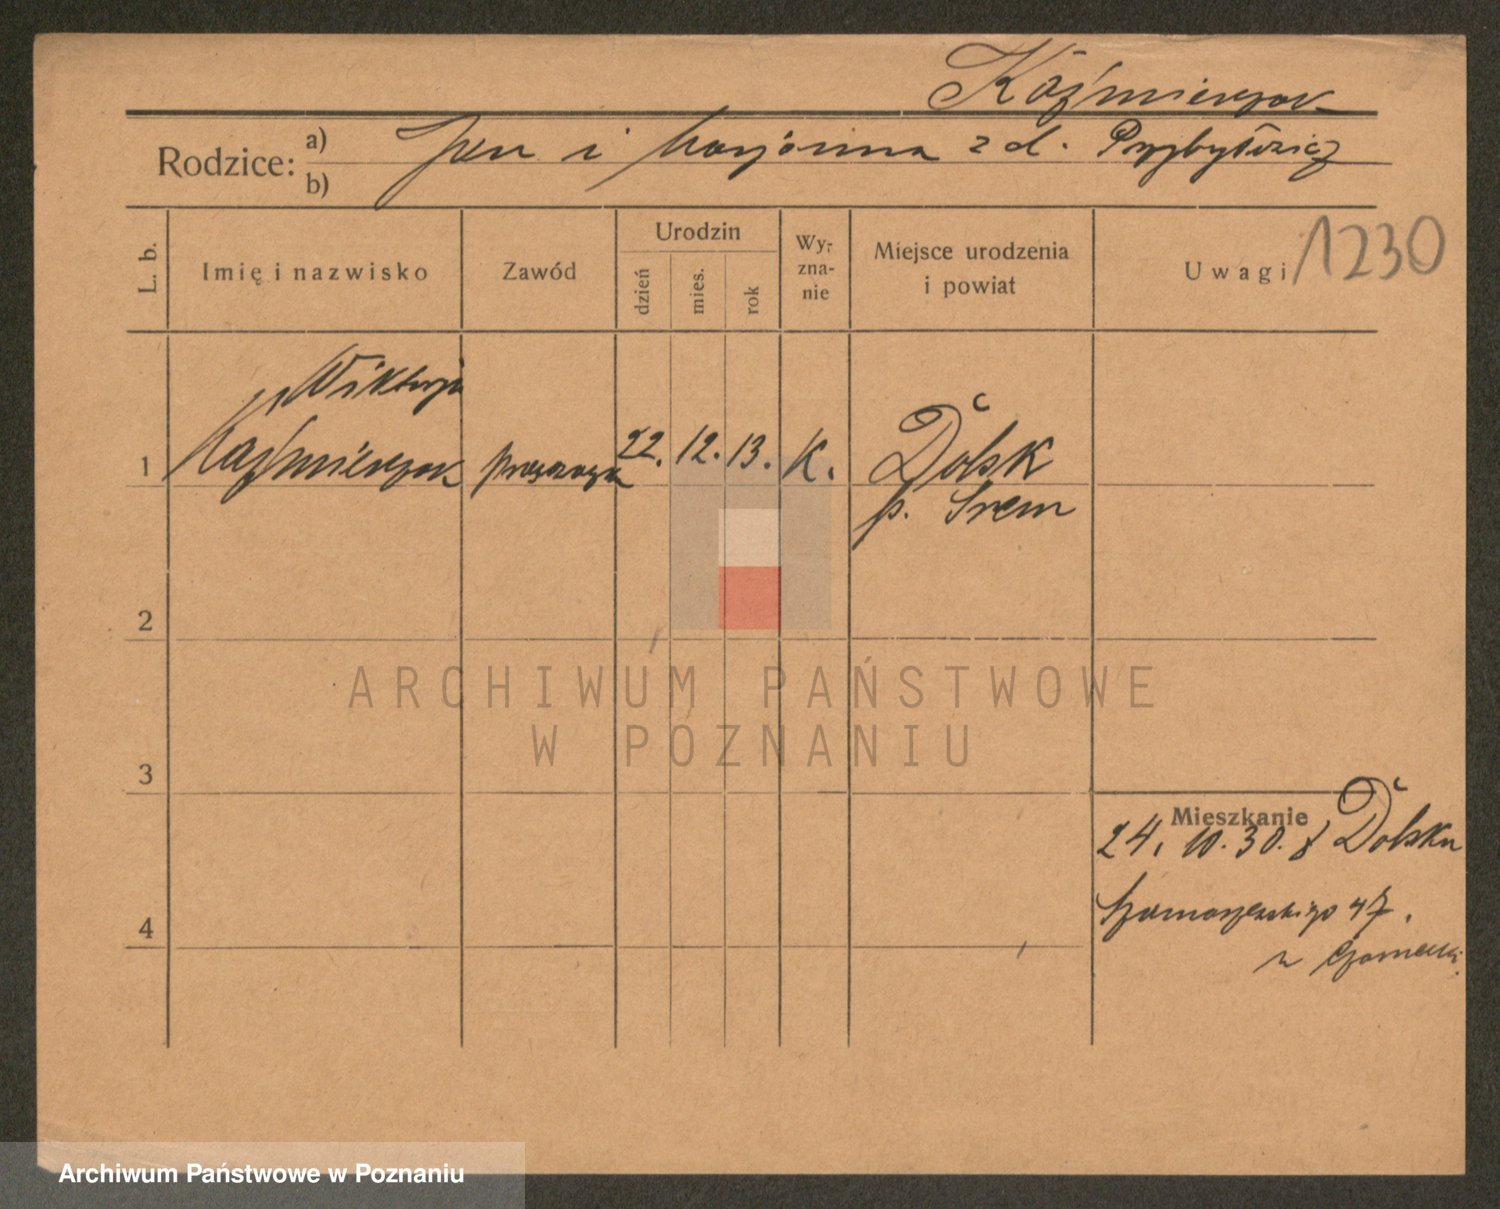 Kaźmierczak
Rodzice: a) Jan i Marjanna z d. Przybylski
b)
L. b. Imię i nazwisko Zawód Urodzin dzień mies. rok Wy-zna-nie Miejsce urodzenia i powiat Uwagi 1230
Wiktorja
1 Kaźmierczak 22. 12. 13. K. Dolsk
p. Śrem
2
3
Mieszkanie
24. 10. 30. z Dolska
47.
4
ARCHIWUM PAŃSTWOWE
W POZNANIU
Archiwum Państwowe w Poznaniu